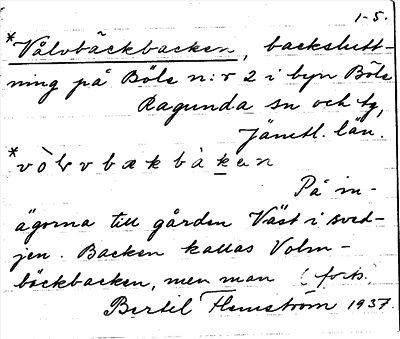 1-5.
*Vålvbäckbacken, backslutt-
ning på Böle n:r 2 i byn Böle
Ragunda sn och tg,
Jämtl. län.
*vòlvbækbàken
På in-
ägorna till gården Väst i sved-
jen. Backen kallas Volm-
bäckbacken, men man (forts.
Bertil Flemström 1937.